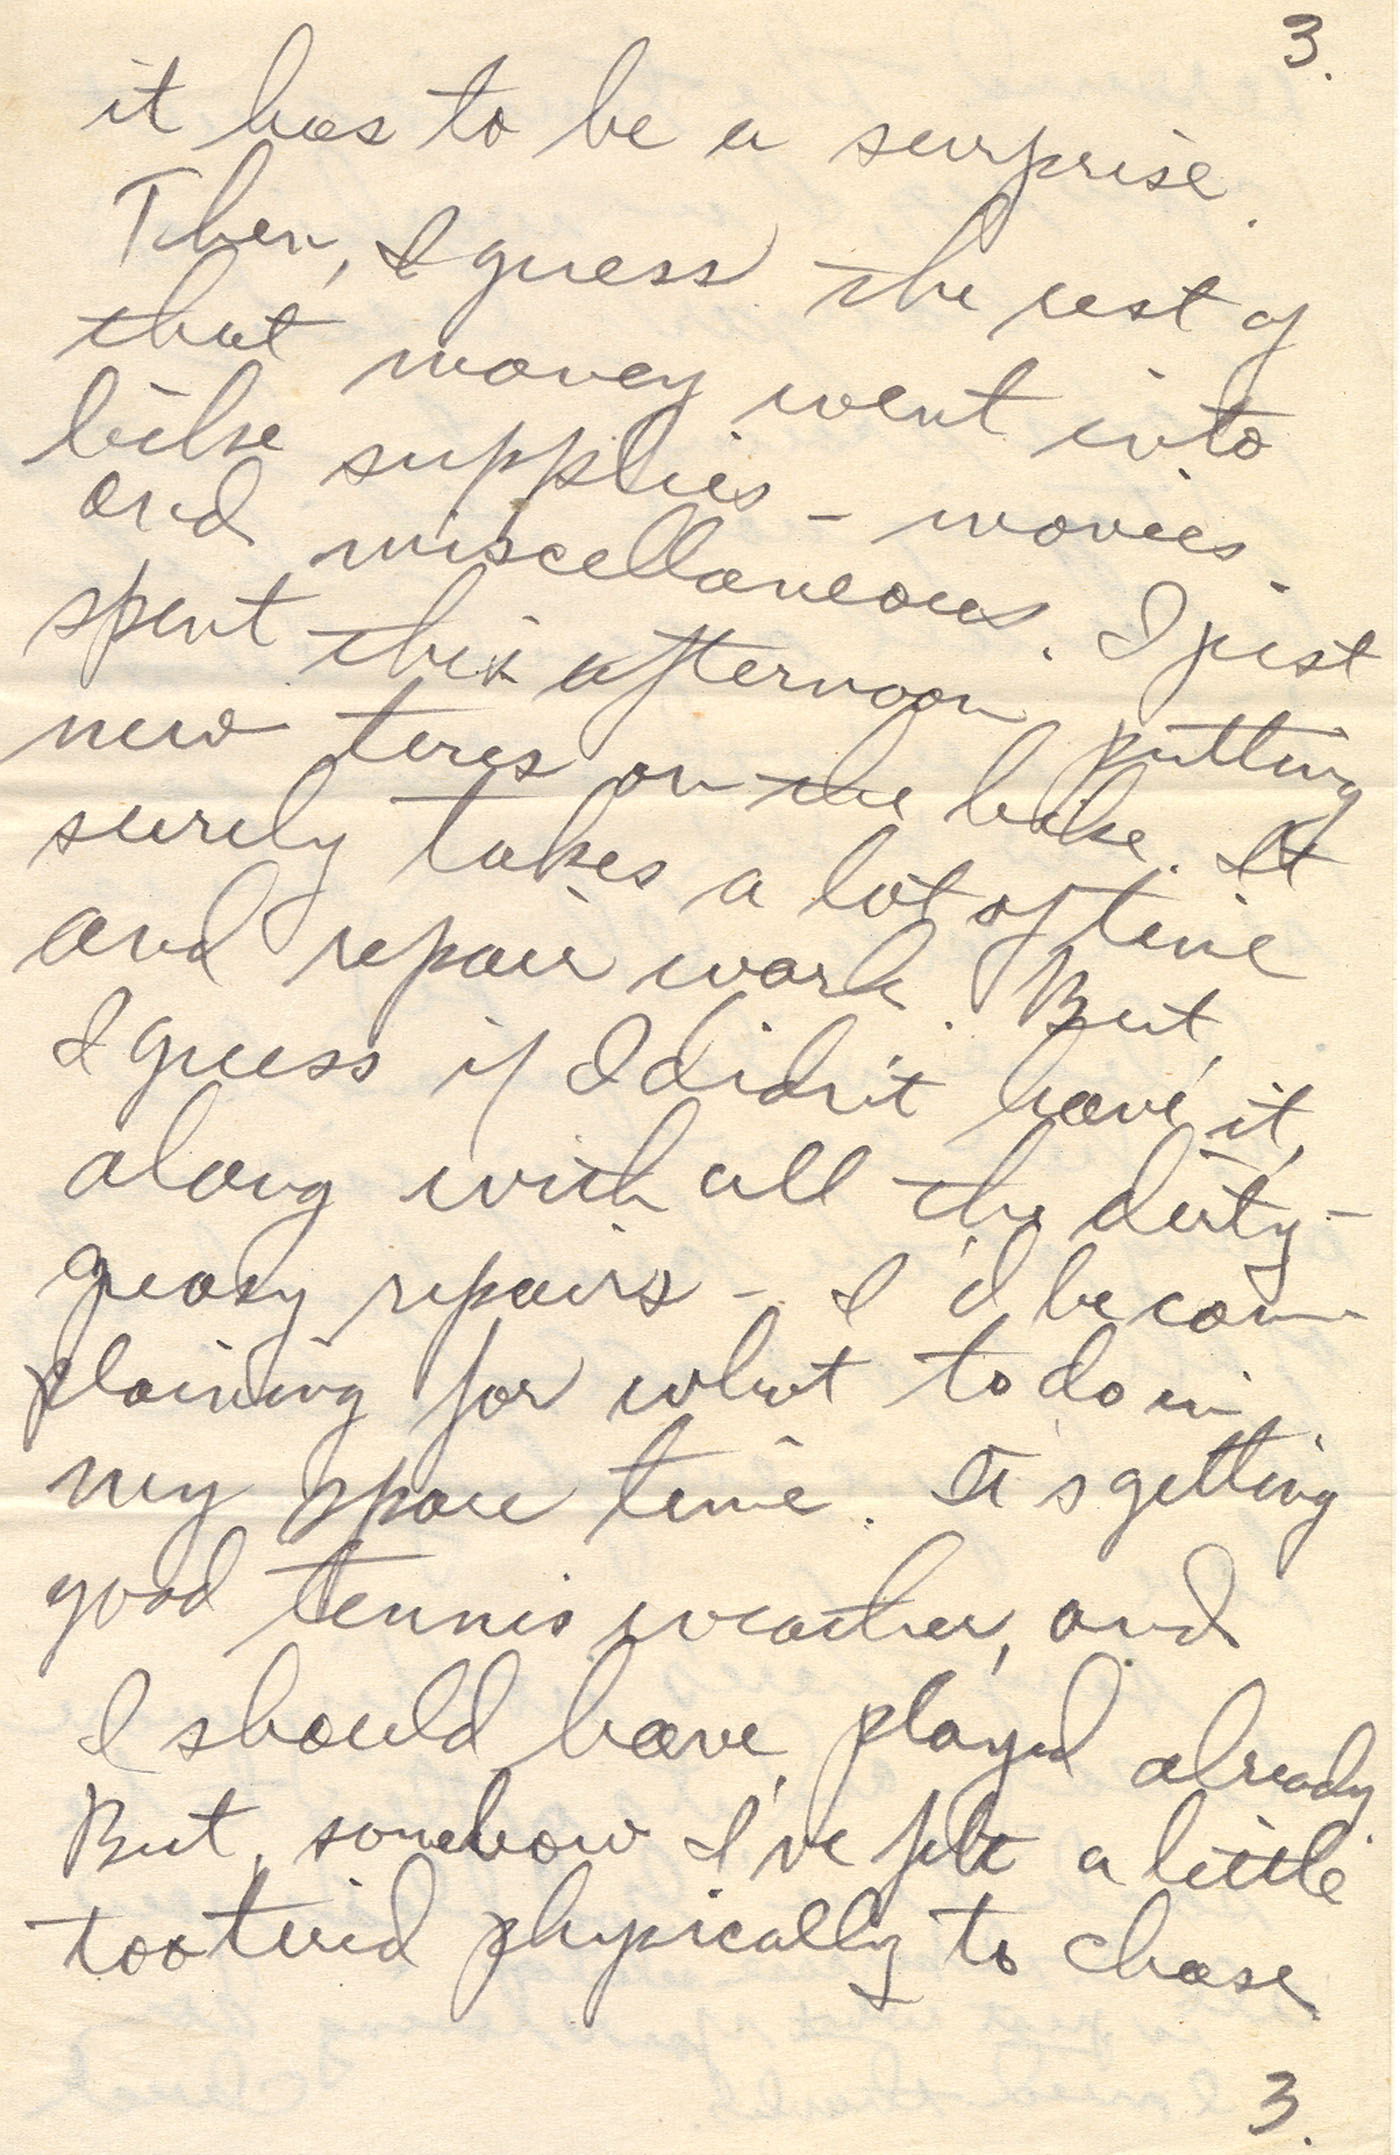 3.
it has to be a surprise.
Then, I guess the rest of
that money went into
bike supplies - movies -
and miscellaneous. I just
spent this afternoon putting
new tires on the bike. It
surely takes a lot of time
and repair work. But,
I guess if I didn't have it,
along with all the dirty -
greasy repairs - I'd be com-
plaining for what to do in
my spare time. It's getting
good tennis weather, and
I should have played already.
But, somehow I've felt a little
too tired physically to chase
3.